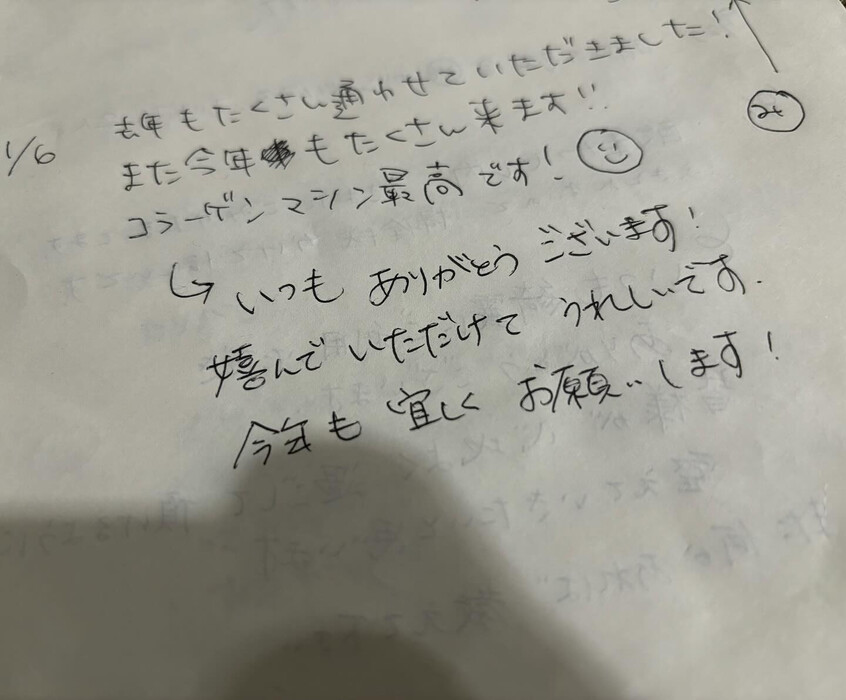 1/6 去年もたくさん通わせていただきました!
また今年もたくさん来ます!!
コラーゲンマシン最高です!
↳ いつも ありがとう ございます!
嬉んで いただけて うれしいです.
今年も 宜しく お願いします!